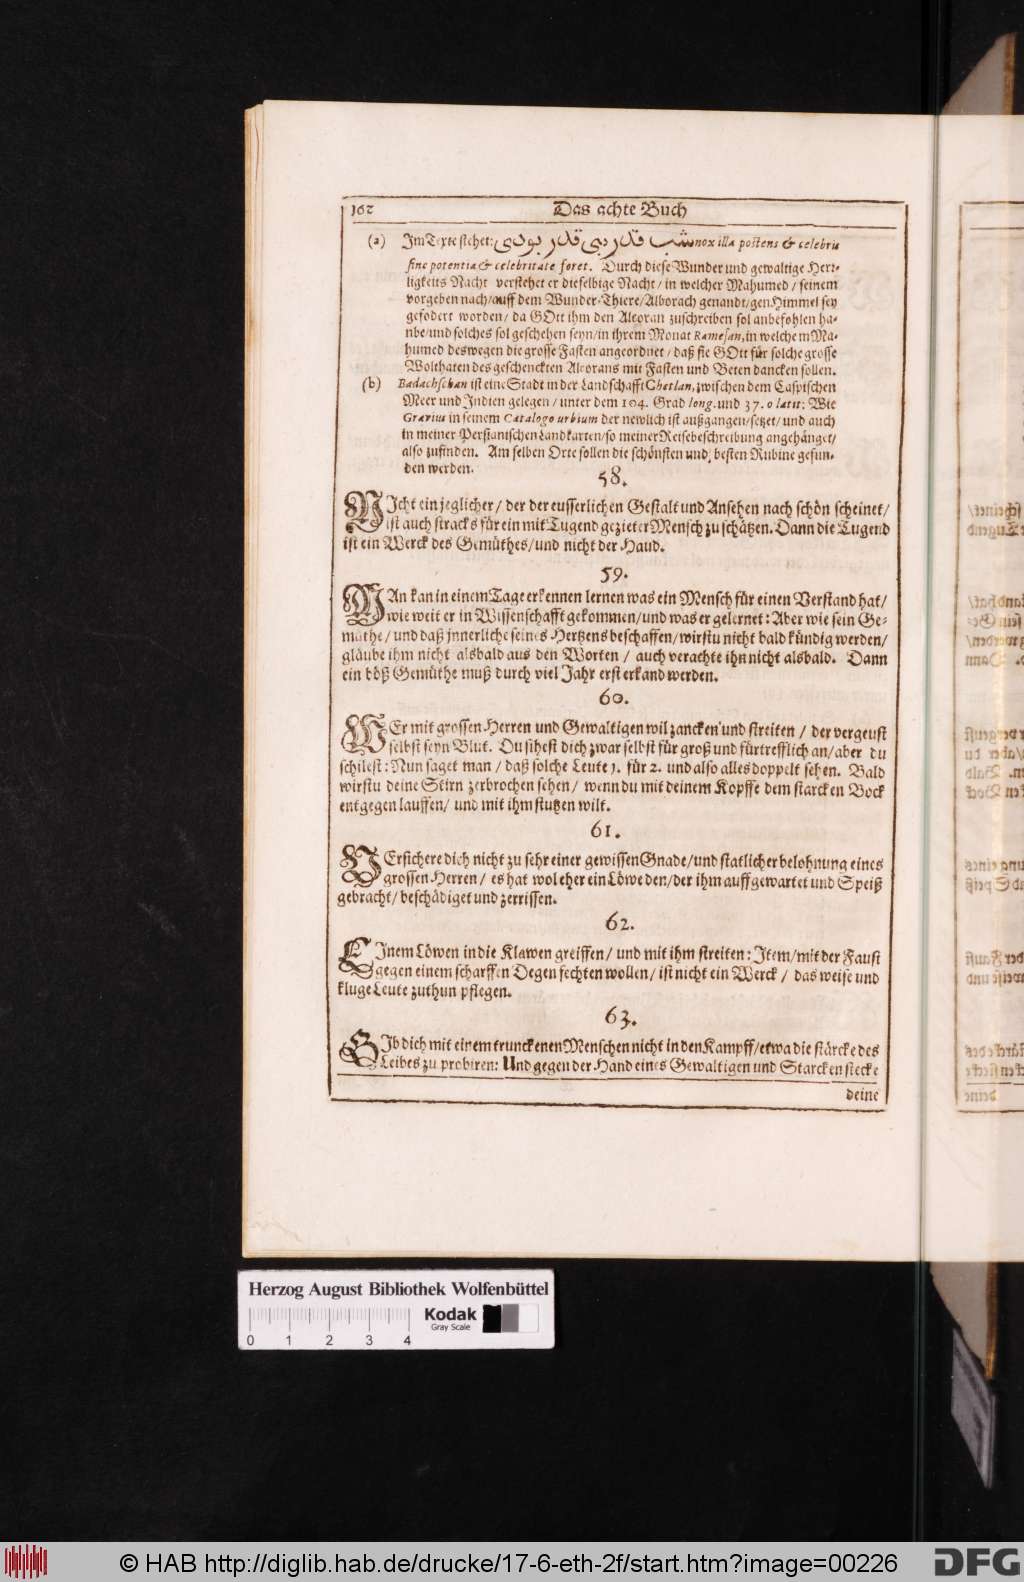 162
Das achte Buch
(a) Im Texte stehet: شب قدر بی قدر بودی nox illa potens & celebris
sine potentia & celebritate foret. Durch diese Wunder und gewaltige Herr-
ligkeits Nacht verstehet er dieselbige Nacht / in welcher Mahumed / seinem
vorgeben nach / auff dem Wunder-Thiere / Alborach genandt / gen Himmel sey
gefodert worden / da GOtt ihm den Alcoran zuschreiben sol anbefohlen ha-
nbe / und solches sol geschehen seyn / in ihrem Monat Ramesan, in welchem Ma-
humed deswegen die grosse Fasten angeordnet / daß sie GOtt für solche grosse
Wolthaten des geschenckten Alcorans mit Fasten und Beten dancken sollen.
(b) Badachschan ist eine Stadt in der Landschafft Chetlan, zwischen dem Caspischen
Meer und Indien gelegen / unter dem 104. Grad long. und 37. 0 latit: Wie
Gravius in seinem Catalogo urbium der newlich ist außgangen / setzet / und auch
in meiner Persianischen Landkarten / so meiner Reisebeschreibung angehänget /
also zufinden. Am selben Orte sollen die schönsten und besten Rubine gefun-
den werden.
58.
NIcht ein jeglicher / der der eusserlichen Gestalt und Ansehen nach schön scheinet /
ist auch stracks für ein mit Tugend gezieter Mensch zu schätzen. Dann die Tugend
ist ein Werck des Gemüthes / und nicht der Haud.
59.
MAn kan in einem Tage erkennen lernen was ein Mensch für einen Verstand hat /
wie weit er in Wissenschafft gekommen / und was er gelernet: Aber wie sein Ge-
müthe / und daß jnnerliche seines Hertzens beschaffen / wirstu nicht bald kündig werden /
gläube ihm nicht alsbald aus den Worten / auch verachte ihn nicht alsbald. Dann
ein böß Gemüthe muß durch viel Jahr erst erkand werden.
60.
WEr mit grossen Herren und Gewaltigen wil zancken und streiten / der vergeust
selbst seyn Blut. Du sihest dich zwar selbst für groß und fürtrefflich an / aber du
schilest: Nun saget man / daß solche Leute 1. für 2. und also alles doppelt sehen. Bald
wirstu deine Stirn zerbrochen sehen / wenn du mit deinem Kopffe dem starcken Bock
entgegen lauffen / und mit ihm stutzen wilt.
61.
VErsichere dich nicht zu sehr einer gewissen Gnade / und statlicher belohnung eines
grossen Herren / es hat wol eher ein Löwe den / der ihm auffgewartet und Speiß
gebracht / beschädiget und zerrissen.
62.
EInem Löwen in die Klawen greiffen / und mit ihm streiten: Item / mit der Faust
gegen einem scharffen Degen fechten wollen / ist nicht ein Werck / das weise und
kluge Leute zuthun pflegen.
63.
GIb dich mit einem trunckenen Menschen nicht in den Kampff / etwa die stärcke des
Leibes zu probiren: Und gegen der Hand eines Gewaltigen und Starcken stecke
deine
Herzog August Bibliothek Wolfenbüttel
Kodak
Gray Scale
0 1 2 3 4
© HAB http://diglib.hab.de/drucke/17-6-eth-2f/start.htm?image=00226
DFG